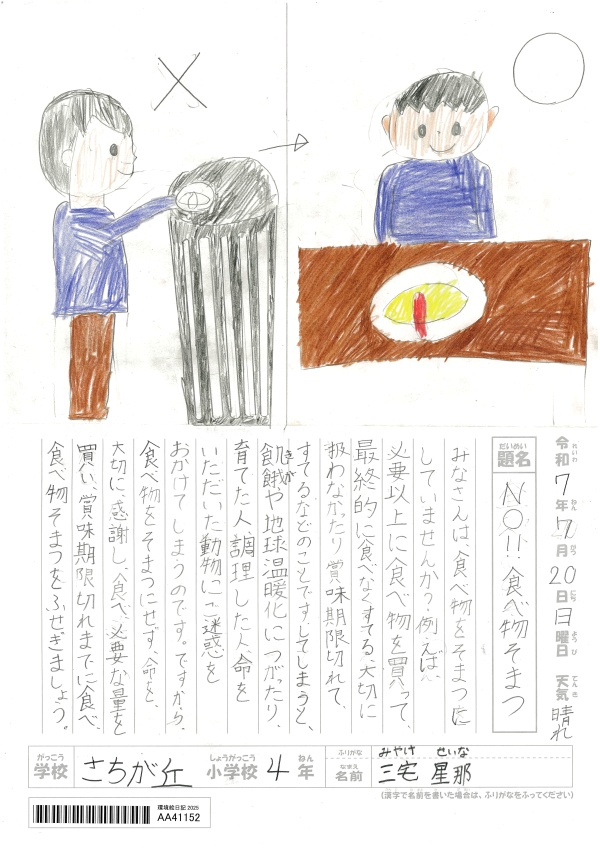 令和7年7月20日日曜日 天気 晴れ
れいわ ねん がつ にち ようび てんき
だいめい
題名 NO!! 食べ物そまつ
みなさんは、食べ物をそまつに
していませんか?例えば、
必要以上に食べ物を買って、
最終的に食べなくすてる、大切に
扱わなかったり賞味期限切れて、
すてるなどのことですしてしまうと、
きが
飢餓や地球温暖化につがったり、
育てた人調理した人、命を
いただいた動物にご迷惑を
おかけてしまうのです。ですから、
食べ物をそまつにせず、命を、
大切に感謝し、食べ、必要な量を
買い、賞味期限切れまでに食べ、
食べ物そまつをふせぎましょう。
がっこう しょうがっこう ねん ふりがな みやけ せいな
学校 さちが丘 小学校 4年 なまえ 名前 三宅 星那
(漢字で名前を書いた場合は、ふりがなをふってください)
環境絵日記 2025
AA41152